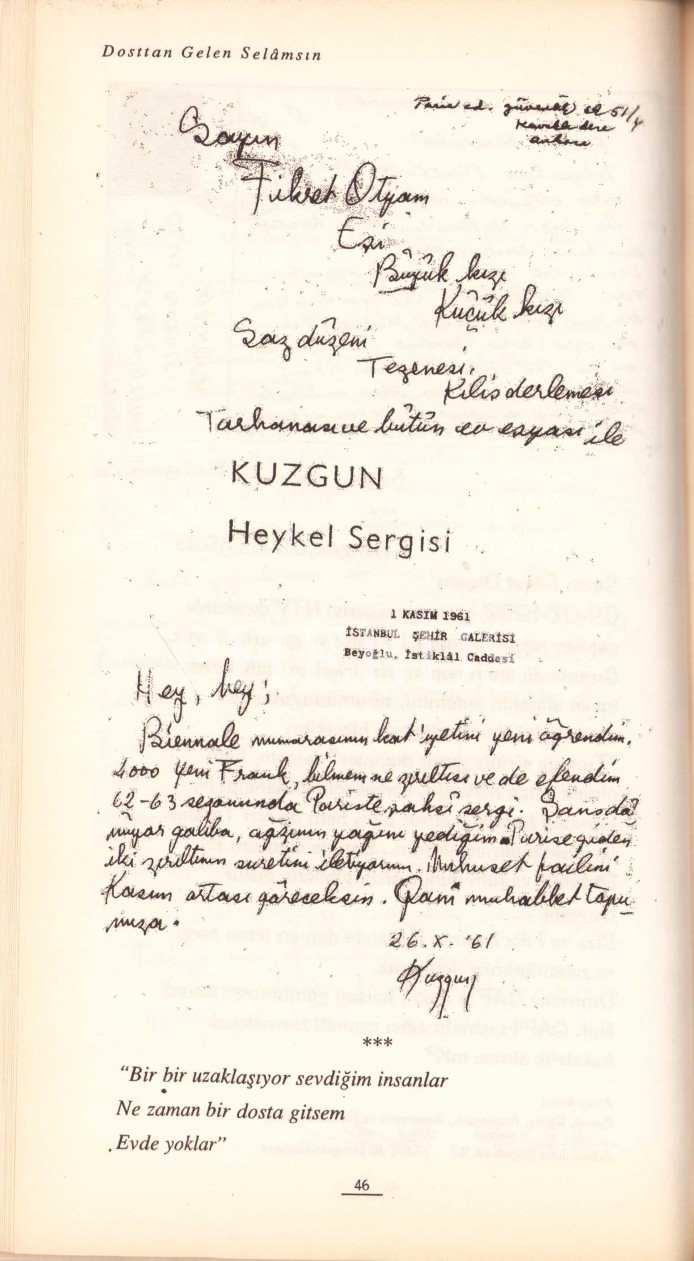 Dosttan Gelen Selâmsın
Paris cd. güvenlik 51/4
Kavaklıdere
ankara
Sayın
Fikret Otyam
Eşi
Büyük kızı
Küçük kızı
Saz düzeni
Tezenesi,
Kilis derlemesi
Tarhanası ve bütün ev eşyası ile
KUZGUN
Heykel Sergisi
1 KASIM 1961
İSTANBUL ŞEHİR GALERİSİ
Beyoğlu, İstiklâl Caddesi
Hey, hey;
Biennale numarasının kat'iyetini yeni öğrendim.
4000 Yeni Frank, bilmem ne zırıltısı ve de efendim
62-63 sezonunda Pariste şahsî sergi. Şans dö
nüyor galiba, ağzının yağını yediğim. Parise giden
iki zırıltının suretini iletiyorum. failini
Kasım ortası göreceksin. muhabbet tapu
nuza.
26.X.'61
Kuzgun
***
“Bir bir uzaklaşıyor sevdiğim insanlar
Ne zaman bir dosta gitsem
Evde yoklar”
46